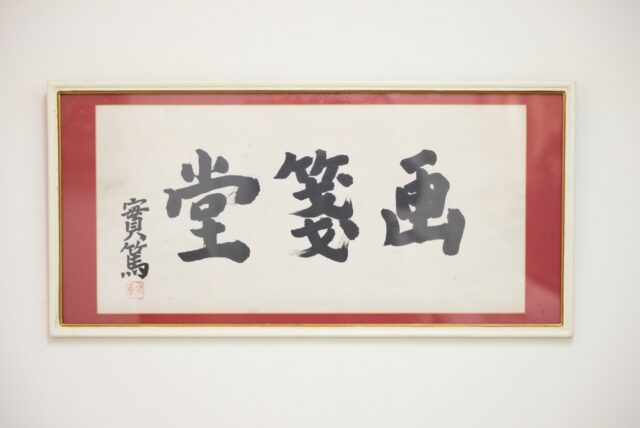 画箋堂
實篤